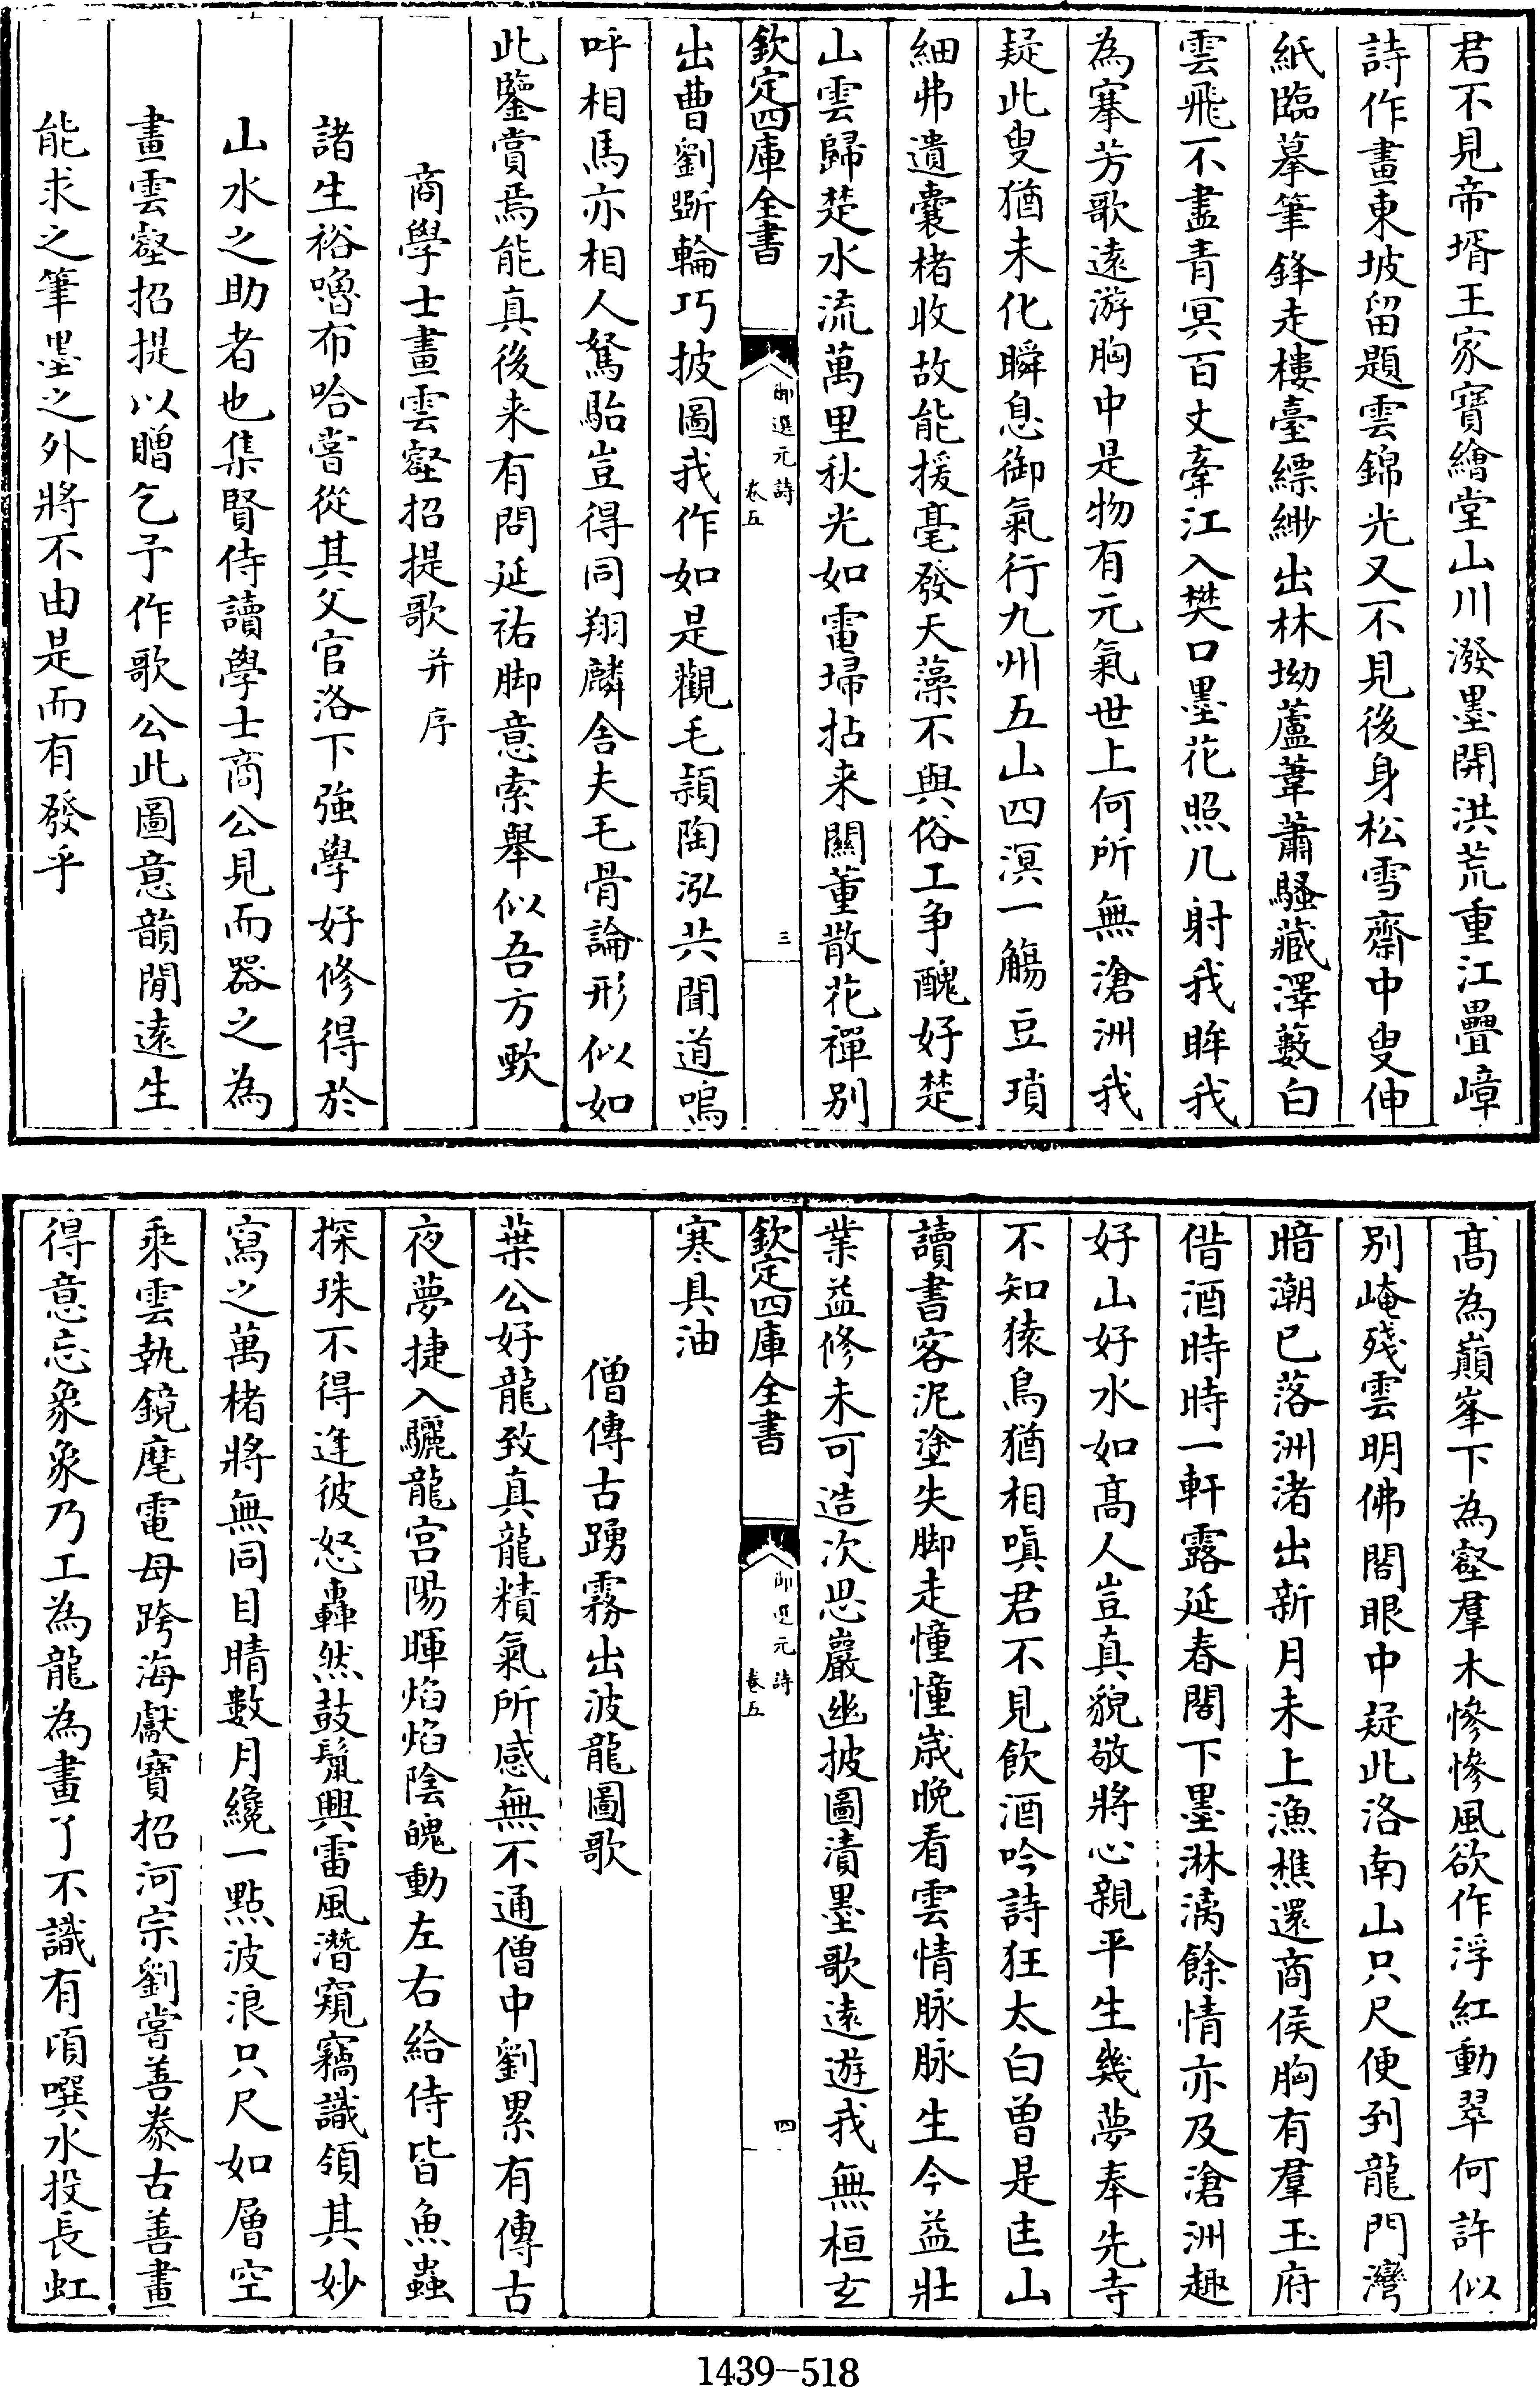 君不見帝壻王家寶繪堂山川潑墨開洪荒重江疊嶂
詩作畫東坡留題雲錦光又不見後身松雪齋中叟伸
紙臨摹筆鋒走樓臺縹緲出林坳蘆葦蕭騷藏澤藪白
雲飛不盡青冥百丈牽江入樊口墨花照几射我眸我
為搴芳歌遠游胸中是物有元氣世上何所無滄洲我
疑此叟猶未化瞬息御氣行九州五山四溟一觴豆瑣
細弗遺囊楮收故能援毫發天藻不與俗工争醜好楚
山雲歸楚水流萬里秋光如電埽拈来關董散花禪别
欽定四庫全書
御選元詩
卷五
三
出曹劉斲輪巧披圖我作如是觀毛頴陶泓共聞道嗚
呼相馬亦相人駑駘豈得同翔麟舎夫毛骨論形似如
此鑒賞焉能真後来有問延祐脚意索舉似吾方歅
商學士畫雲壑招提歌并序
諸生裕嚕布哈嘗從其父官洛下強學好修得於
山水之助者也集賢侍讀學士商公見而器之為
畫雲壑招提以贈乞予作歌公此圖意韻閒遠生
能求之筆墨之外將不由是而有發乎
髙為巔峯下為壑羣木慘慘風欲作浮紅動翠何許似
别崦殘雲明佛閣眼中疑此洛南山只尺便到龍門灣
暗潮已落洲渚出新月未上漁樵還商侯胸有羣玉府
偕酒時時一軒露延春閣下墨淋漓餘情亦及滄洲趣
好山好水如髙人豈真貌敬將心親平生幾夢奉先寺
不知猿鳥猶相嗔君不見飲酒吟詩狂太白曽是匡山
讀書客泥塗失脚走憧憧嵗晩看雲情脉脉生今益壯
業益修未可造次思巖幽披圖漬墨歌遠遊我無桓玄
欽定四庫全書
御選元詩
卷五
四
寒具油
僧傳古踴霧出波龍圖歌
葉公好龍致真龍精氣所感無不通僧中劉累有傳古
夜夢捷入驪龍宫陽暉焰焰陰魄動左右給侍皆魚蟲
探珠不得逢彼怒轟然鼓鬛興雷風潛窺竊識領其妙
寫之萬楮將無同目睛數月纔一點波浪只尺如層空
乘雲執鏡麾電母跨海獻寶招河宗劉嘗善豢古善畫
得意忘象象乃工為龍為畫了不識有頃噀水投長虹
1439-518